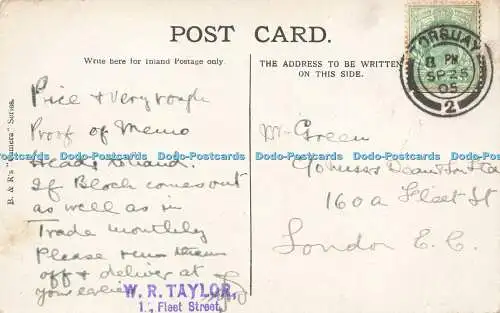 POST CARD.
Write here for Inland Postage only.
THE ADDRESS TO BE WRITTEN
ON THIS SIDE.
TORQUAY
8 PM
SP 25
05
2
B. & R's "Camera" Series.
Price & very rough
Proof of Memo
Heads to hand.
If Block comes out
as well as in
Trade monthly
Please run them
off & deliver at
your earliest
W. R. TAYLOR,
1, Fleet Street,
Mr Green
160a Fleet St
London E.C.
Dodo-Postcards Dodo-Postcards Dodo-Postcards Dodo-Postcards